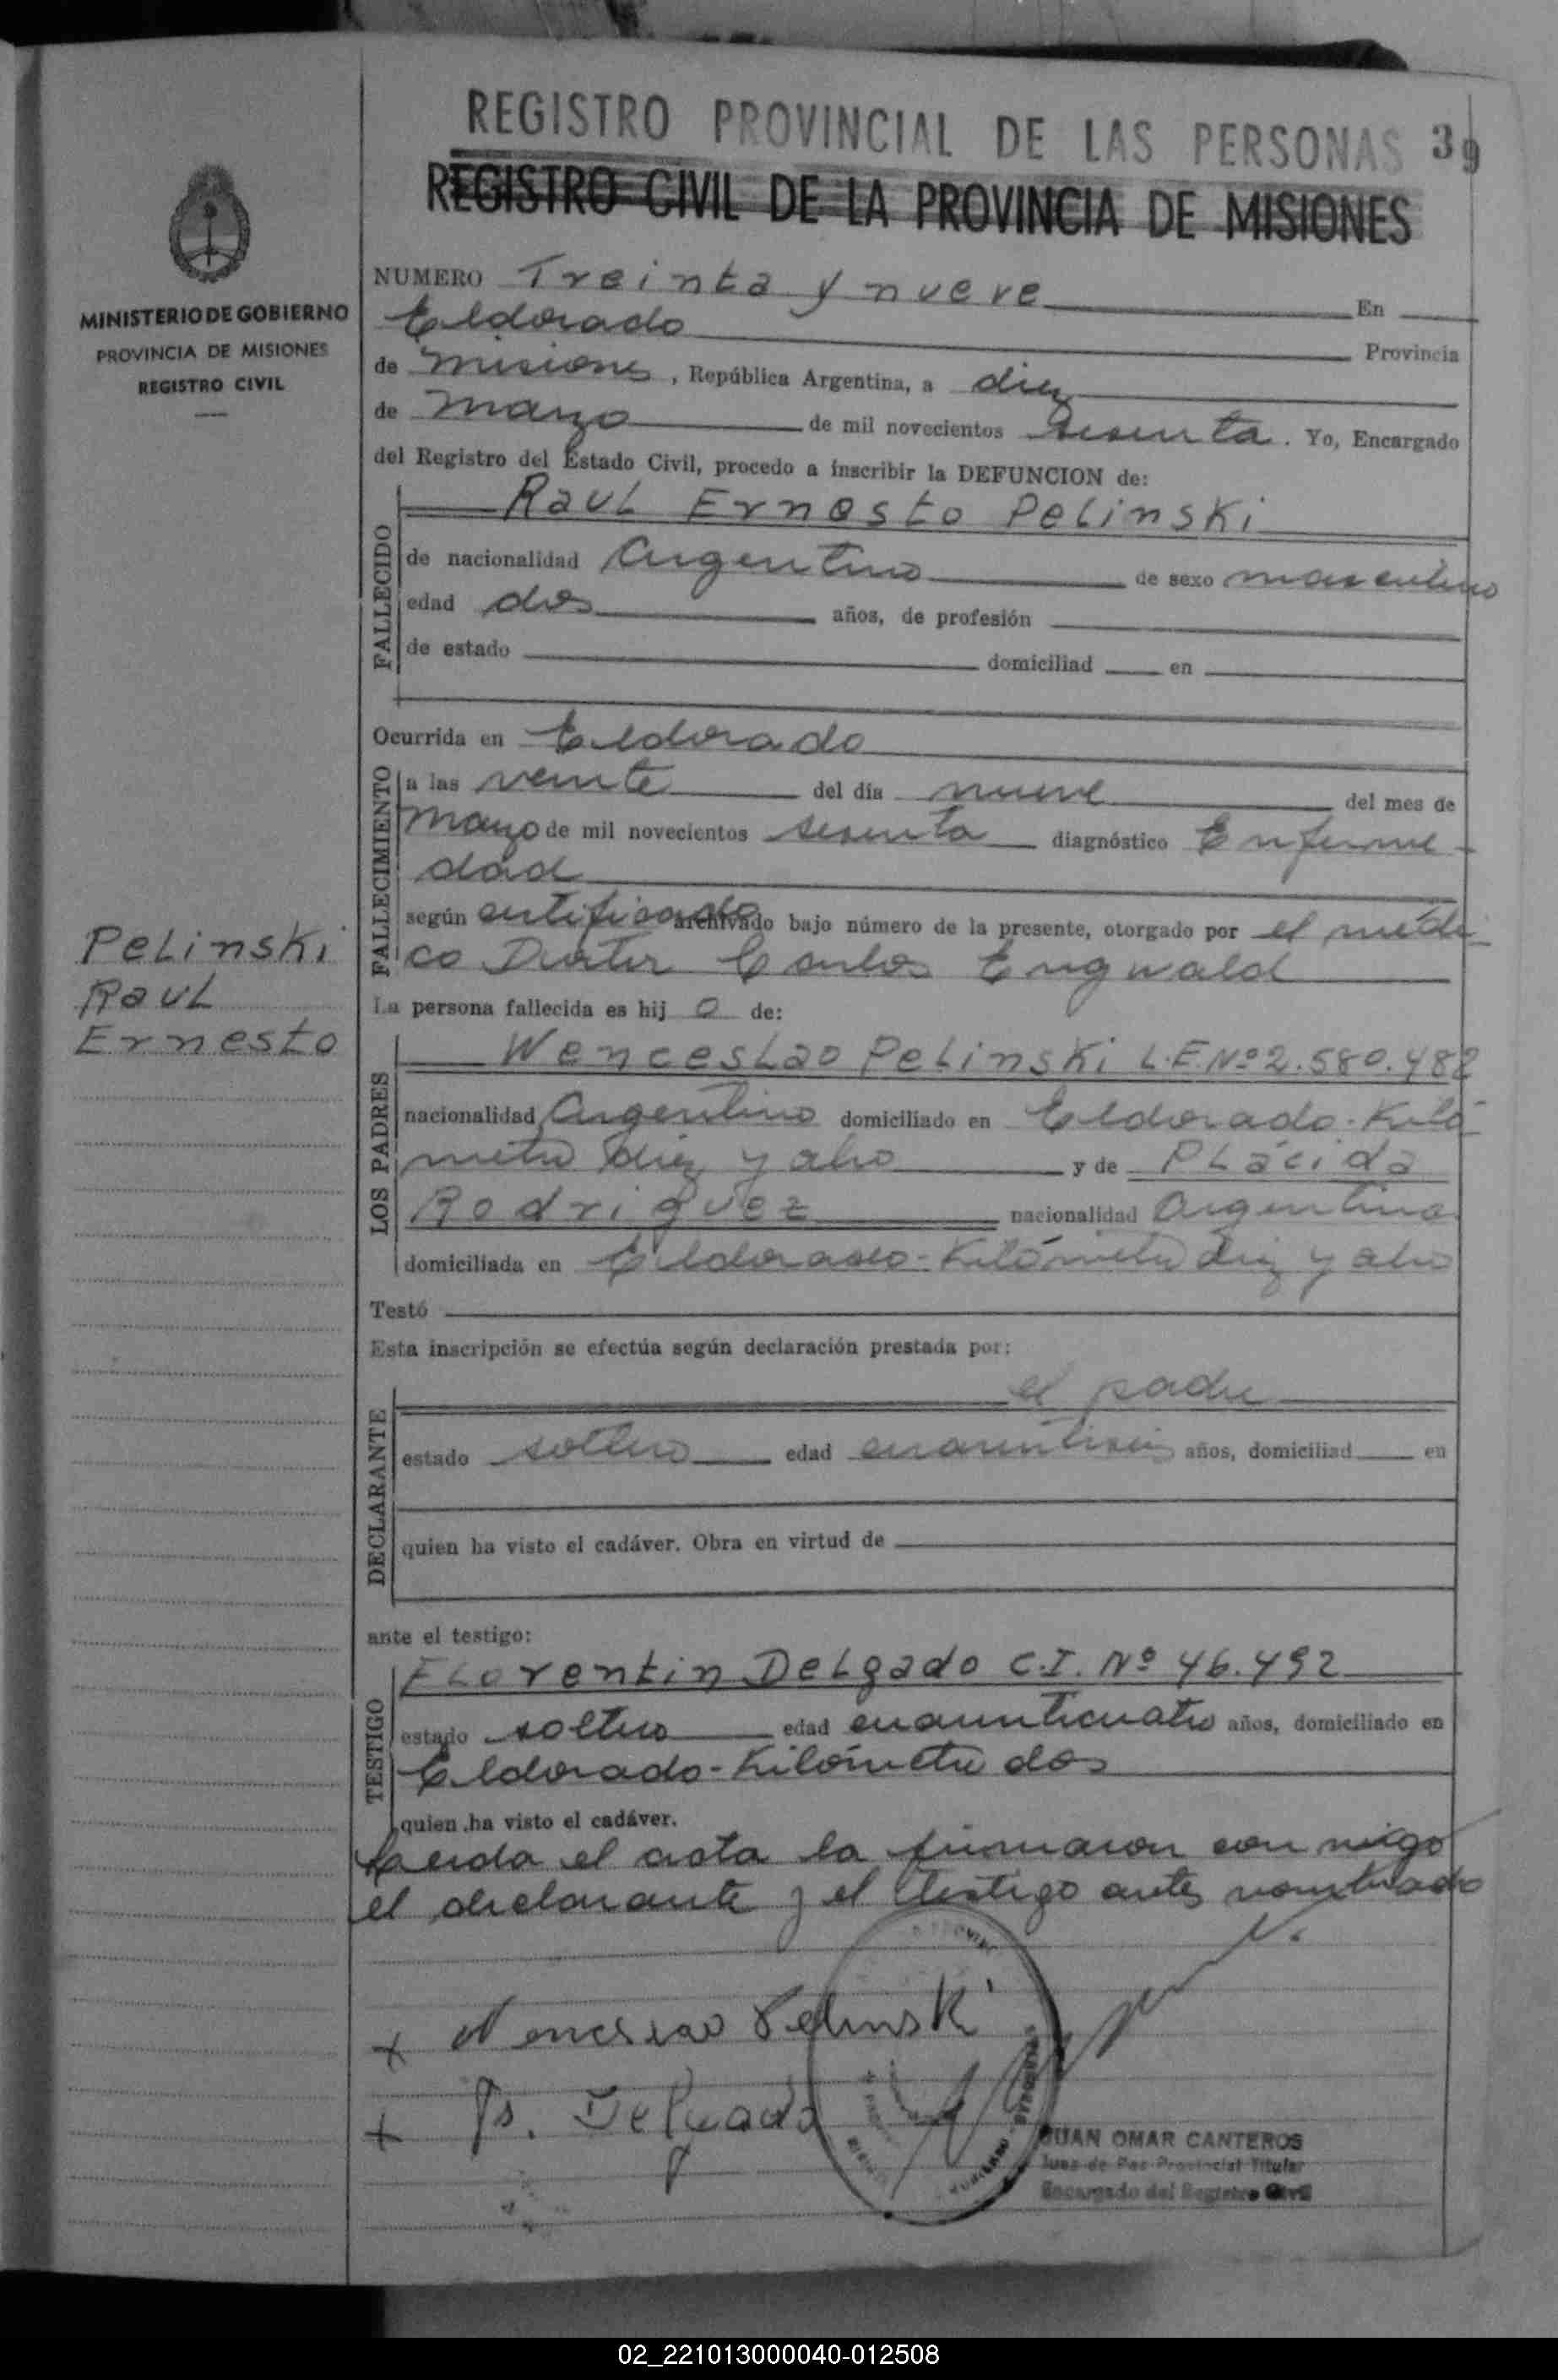 REGISTRO PROVINCIAL DE LAS PERSONAS 39
REGISTRO CIVIL DE LA PROVINCIA DE MISIONES
MINISTERIO DE GOBIERNO
PROVINCIA DE MISIONES
REGISTRO CIVIL
NUMERO Treinta y nueve En
Eldorado Provincia
de Misiones, República Argentina, a diez
de marzo de mil novecientos sesenta. Yo, Encargado
del Registro del Estado Civil, procedo a inscribir la DEFUNCION de:
FALLECIDO
Raul Ernesto Pelinski
de nacionalidad Argentino de sexo masculino
edad dos años, de profesión
de estado domiciliad en
Ocurrida en Eldorado
FALLECIMIENTO
a las veinte del día nueve del mes de
marzo de mil novecientos sesenta diagnóstico Enferme-
dad
según certificado archivado bajo número de la presente, otorgado por el médi-
co Doctor Carlos Engwald
Pelinski
Raul
Ernesto
La persona fallecida es hijo de:
LOS PADRES
Wenceslao Pelinski L.E.Nº2.580.482
nacionalidad Argentino domiciliado en Eldorado-Kiló-
metro diez y ocho y de Plácida
Rodriguez nacionalidad Argentina
domiciliada en Eldorado-Kilómetro diez y ocho
Testó
Esta inscripción se efectúa según declaración prestada por:
DECLARANTE
el padre
estado soltero edad años, domiciliad en
quien ha visto el cadáver. Obra en virtud de
ante el testigo:
TESTIGO
Florentin Delgado C.I. Nº 46.492
estado soltero edad cuarenticuatro años, domiciliado en
Eldorado-Kilómetro dos
quien ha visto el cadáver.
Leida el acta la firmaron con migo
el declarante y el testigo antes nombrado
+ Wenceslao Pelinski
+ Delgado
JUAN OMAR CANTEROS
Juez de Paz Provincial Titular
Encargado del Registro Civil
02_221013000040-012508